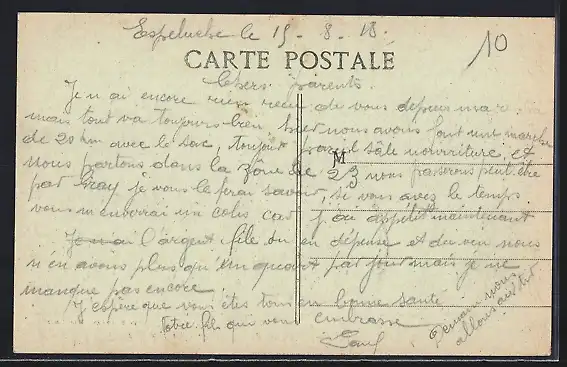 Espeluche le 15-8-18.
10
CARTE POSTALE
Chers parents.
Je n ai encore rien reçu de vous depuis
mais tout va toujours bien, hier nous avons fait une marche
de 20 km avec le sac, toujours sale nourriture, et
M
nous partons dans la zône le 23 nous passerons peut être
par Gray je vous le ferai savoir, si vous avez le temps
vous m enverrai un colis car j ai appétit maintenant
l argent file on en dépense et du vin nous
n en avons plus qu un quart par jour mais je ne
manque pas encore
J espère que vous êtes tous en bonne santé
Votre fils qui vous embrasse
Demain nous
allons au tir